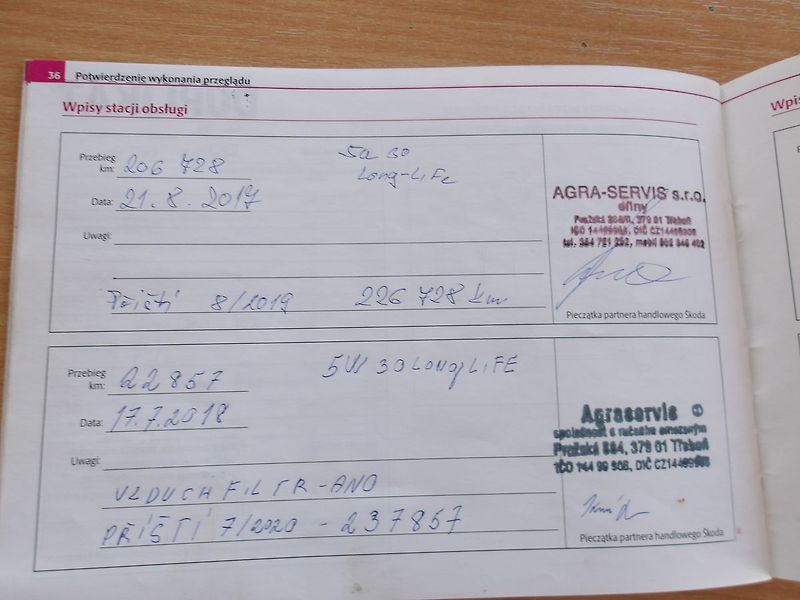 36 Potwierdzenie wykonania przeglądu
Wpisy stacji obsługi
Przebieg km: 206 728
5W 30
Long-Life
Data: 21.8.2017
Uwagi:
Příští 8/2019 226 728 km
AGRA-SERVIS s.r.o.
dílny
Pražská 379 01 Třeboň
IČO DIČ
tel. 384 721 mobil
Pieczątka partnera handlowego Škoda
Przebieg km: 22857
5W 30 LONG LIFE
Data: 17.7.2018
Uwagi:
VZDUCH FILTR - ANO
PŘÍŠTÍ 7/2020 - 237857
Agraservis
společnost s ručením omezeným
Pražská 884, 379 01 Třeboň
IČO 144 99 908, DIČ
Pieczątka partnera handlowego Škoda
Wpis